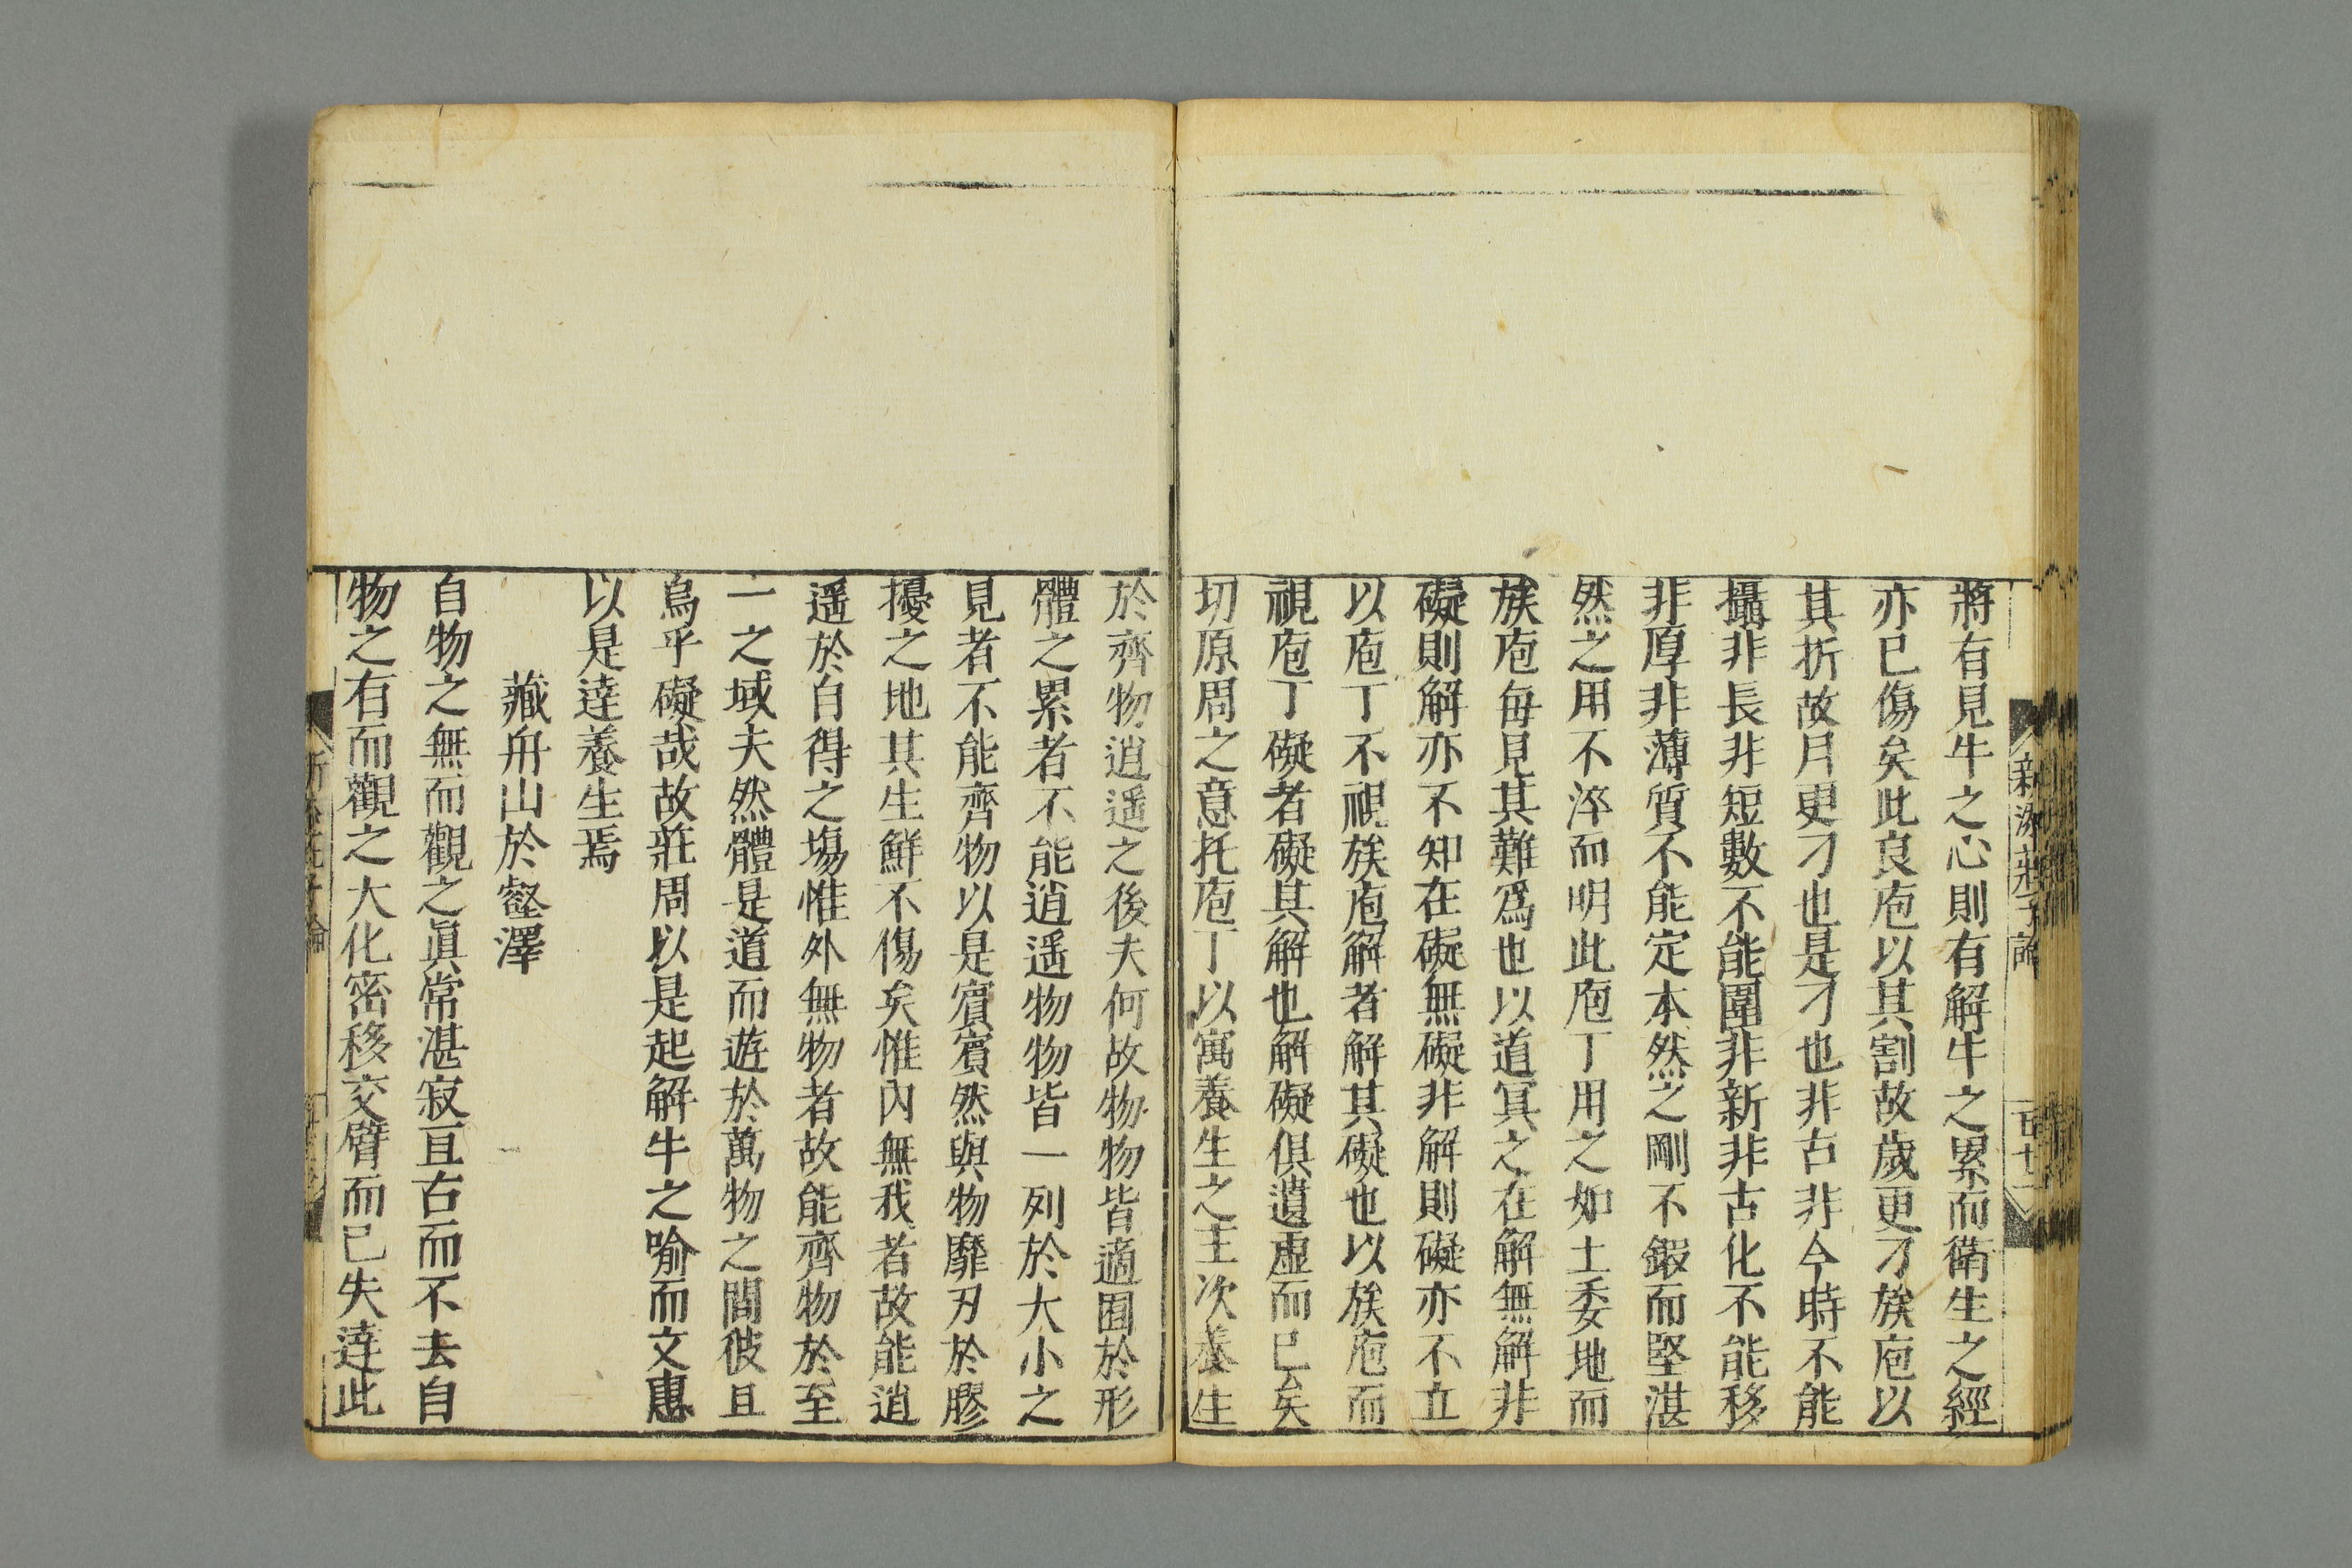 將有見牛之心則有解牛之累而衛生之經
亦已傷矣此良庖以其割故歲更刀族庖以
其折故月更刀也是刀也非古非今時不能
攝非長非短數不能圍非新非古化不能移
非厚非薄質不能定本然之剛不鍜而堅湛
然之用不淬而明此庖丁用之如土委地而
族庖每見其難爲也以道冥之在解無解非
礙則解亦不知在礙無礙非解則礙亦不立
以庖丁不視族庖解者解其礙也以族庖而
視庖丁礙者礙其解也解礙俱遺虛而已矣
切原周之意托庖丁以寓養生之主次養生
於齊物逍遥之後夫何故物物皆適囿於形
體之累者不能逍遥物物皆一列於大小之
見者不能齊物以是賔賔然與物靡刃於膠
擾之地其生鮮不傷矣惟內無我者故能逍
遥於自得之塲惟外無物者故能齊物於至
一之域夫然體是道而遊於萬物之間彼且
烏乎礙哉故莊周以是起解牛之喻而文惠
以是達養生焉
藏舟山於壑澤
自物之無而觀之眞常湛寂亘古而不去自
物之有而觀之大化密移交臂而已失達此